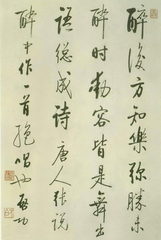 醉後方知樂弥勝未
醉时動容皆是舞出
語總成詩唐人張說
醉中作一首启功